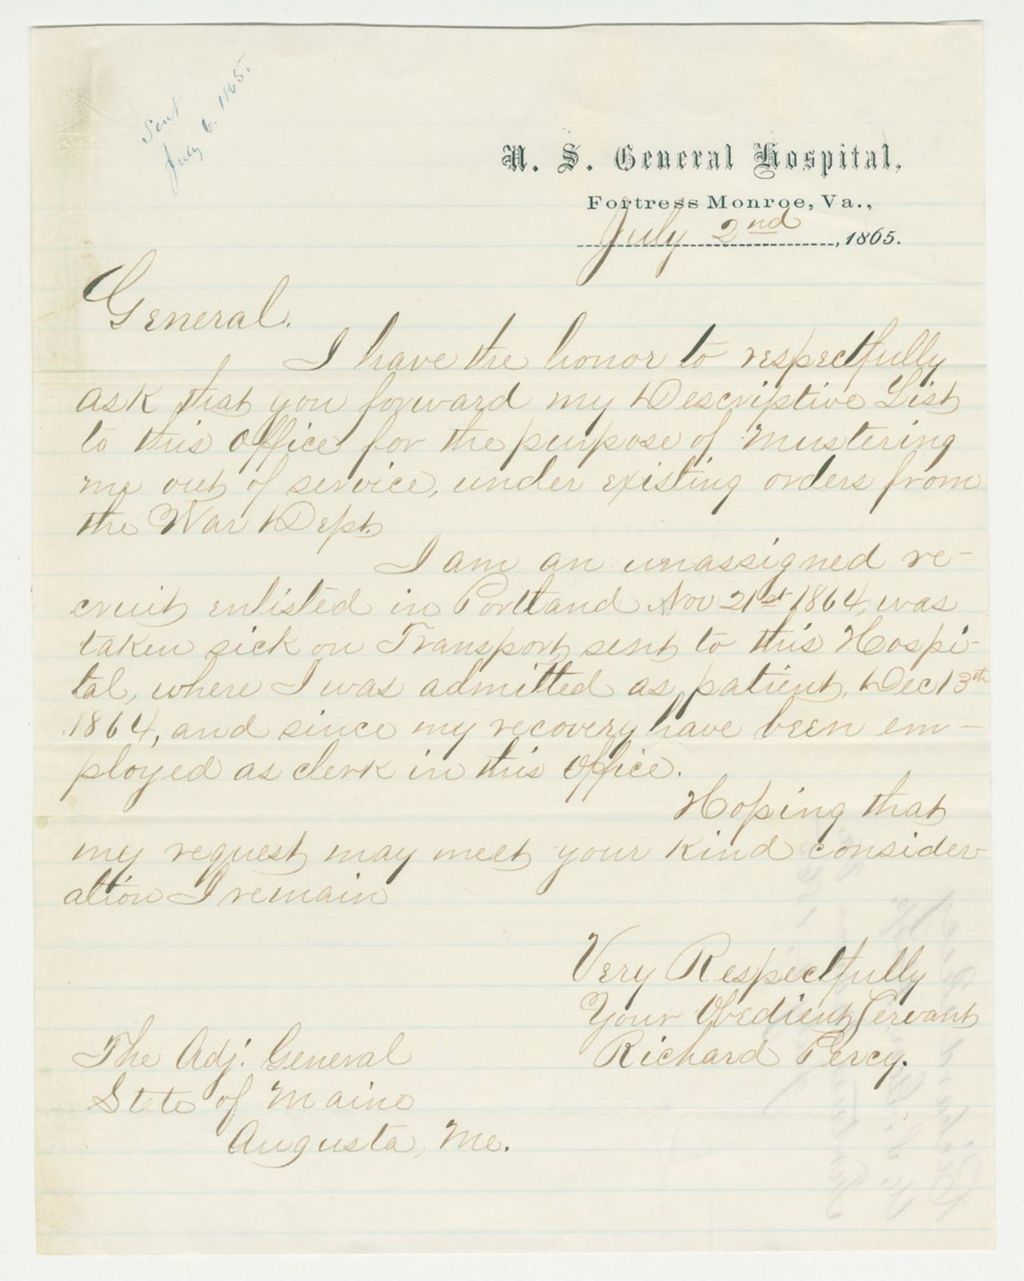 Sent
July 6. 1865.
U. S. General Hospital,
Fortress Monroe, Va.,
July 2nd, 1865.
General.
I have the honor to respectfully
ask that you forward my Descriptive List
to this Office for the purpose of Mustering
me out of service, under existing orders from
the War Dept.
I am an unassigned re-
cruit enlisted in Portland Nov 21st 1864, was
taken sick on Transport, sent to this Hospi-
tal, where I was admitted as patient, Dec 13th
1864, and since my recovery have been em-
ployed as clerk in this Office.
Hoping that
my request may meet your kind consider-
ation I remain
Very Respectfully
Your Obedient Servant
Richard Percy.
The Adj. General
State of Maine
Augusta, Me.